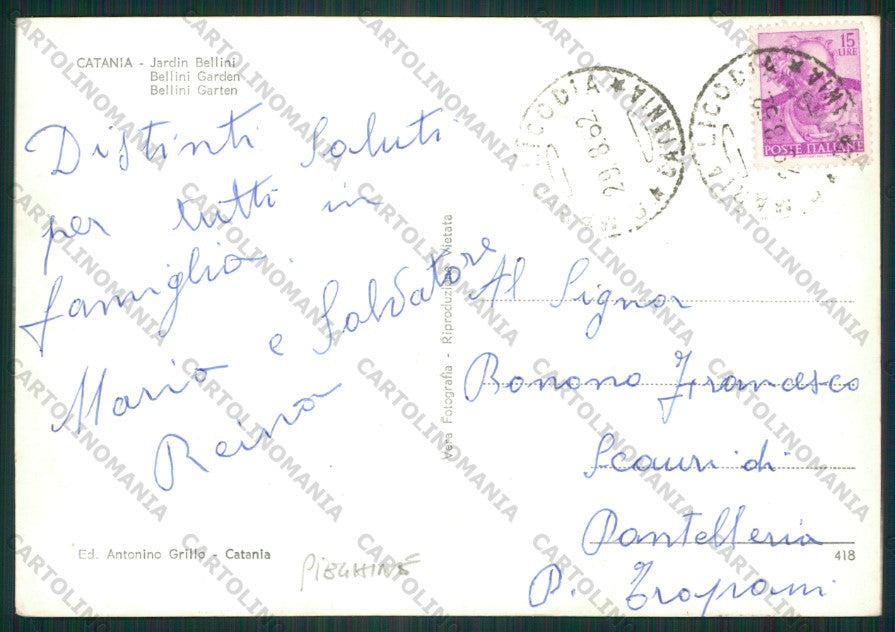 CATANIA - Jardin Bellini
Bellini Garden
Bellini Garten
15
LIRE
POSTE ITALIANE
LICODIA ★ CATANIA ★
29.8.62
Distinti Saluti
per tutti in
famiglia.
Mario e Salvatore
Reina
Vera Fotografia - Riproduzione Vietata
Al Signor
Bonono Francesco
Scauri di
Pantelleria
P. Trapani
Ed. Antonino Grillo - Catania
PIEGHINE
418
CARTOLINOMANIA